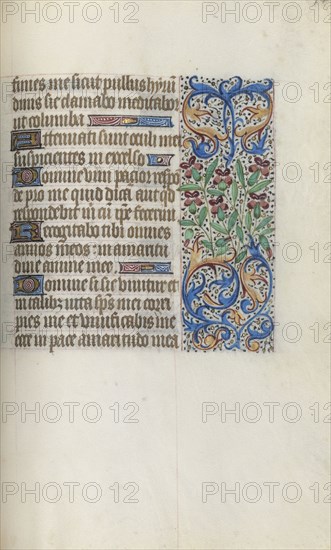 sumes me sicut pullus hyrun
dinis sic clamabo meditabor
ut columba
Attenuati sunt oculi mei
suspicientes in excelso
Domine vim pacior respo
de pro me quid dicam aut q
respondebit michi cum ipse fecerit
Recogitabo tibi omnes
annos meos in amaritu
dine anime mee
Domine si sic vivitur et
in talibus vita sps mei corri
pies me et vivificabis me
ecce in pace amaritudo mea
PHOTO 12 PHOTO 12 PHOTO 12
PHOTO 12 PHOTO 12 PHOTO 12
PHOTO 12 PHOTO 12 PHOTO 12